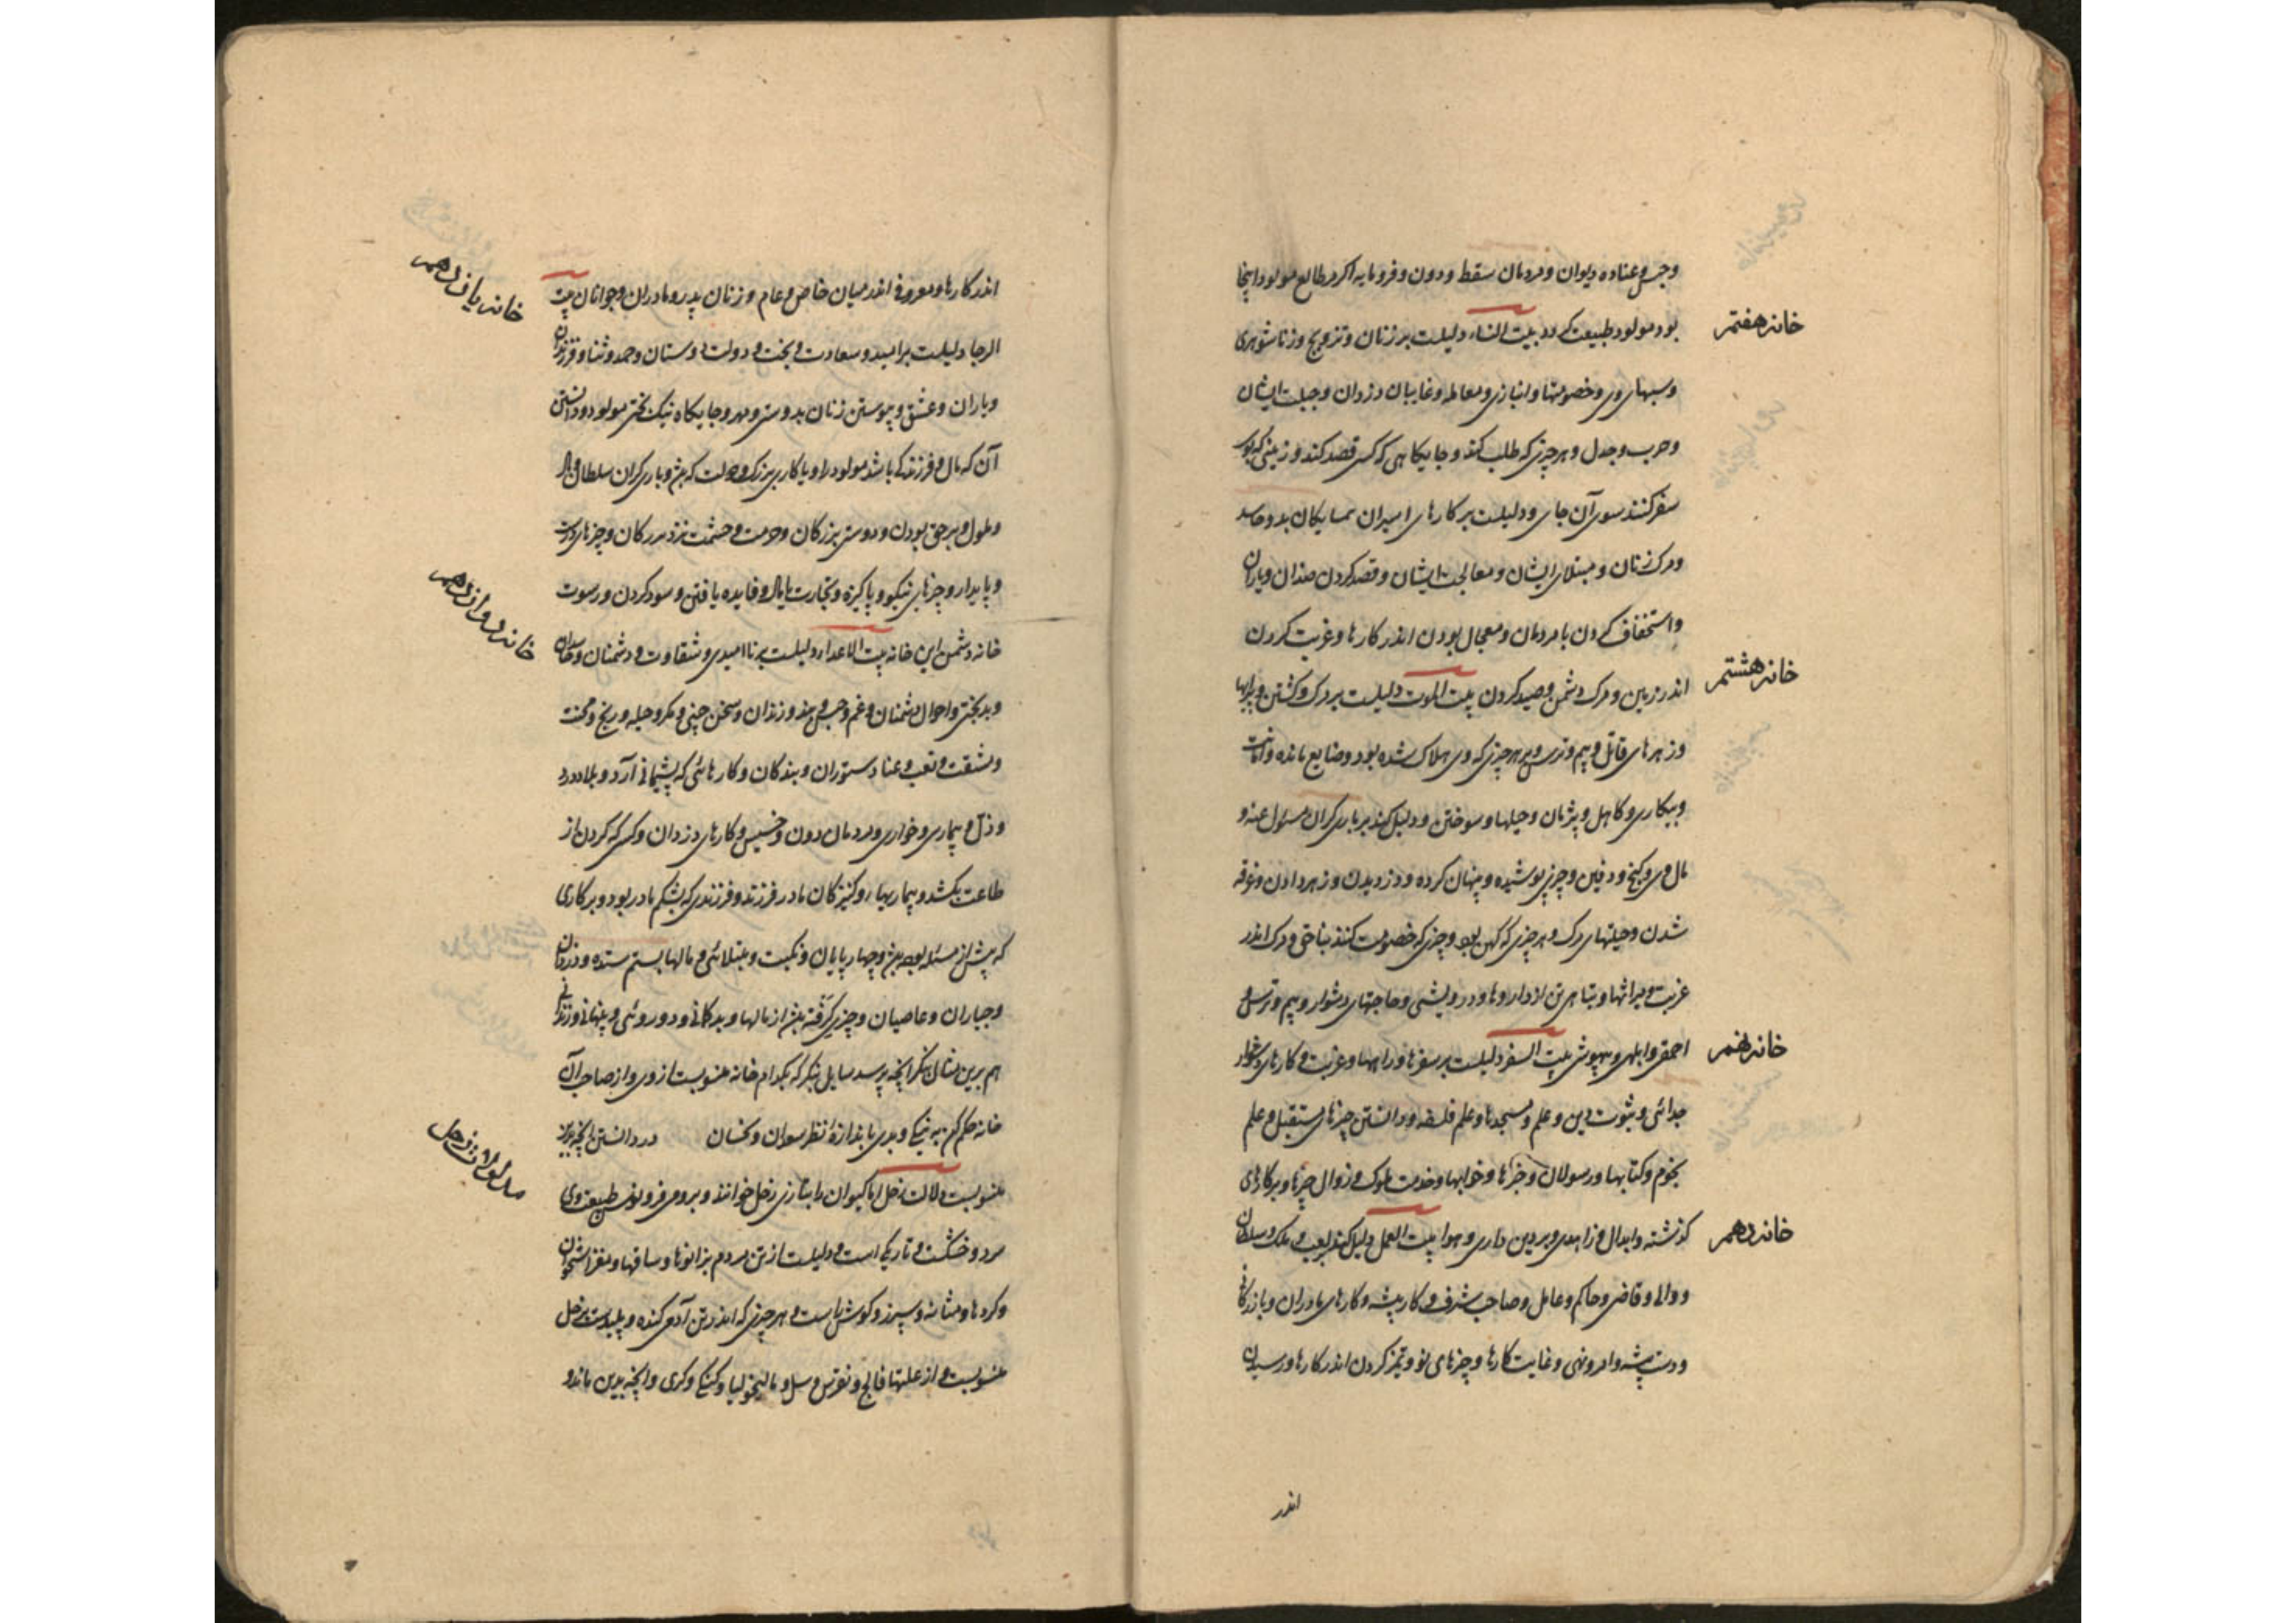 و حبس و عناده دیوان و مردمان سقط و دون و فرومایه اکر مر طالع مولود اینجا
خانه هفتم
بود مولود طبیعت بیت النساء دلیلست بر زنان و تزویج و زناشوهری
و خصومتها و انبازی و معامله و غایبان دزدان و ایشان
و حرب و جدل و هر چیزی که طلب کند و جایکاهی که کسی قصد کند و زمینی که
سفر کنند سوی آن جای و دلیلست بر کارهای اسیران همسایکان بد و حاسد
و مرک زنان و ایشان و ایشان و قصد کردن ضدان و یاران
و استخفاف کردن با مردمان و معجال بودن اندر کارها و غربت کردن
خانه هشتم
اندر زمین و مرک دشمن و صید کردن بیت الموت دلیلست بر مرک و کشتن و
و زهرهای قاتل و بیم و ترس و بر هر چیزی که وی هلاک شده بود و ضایع مانده و
و بیکاری و کاهل و پژمان و حیلها و سوختن و دلیل کند بر یاری کران مسئول عنه و
مال وی و کنج و دفین و چیزی پوشیده و پنهان کرده و دزدیدن و زهر دادن و غرقه
شدن و حیلتهای مرک و هر چیزی که کهن بود و چیزی که خصومت کنند بناحق و مرک اندر
غربت و میراثها و تباهی تن از داروها و درویشی و حاجتهای دشوار و بیم و ترس و
خانه نهم
احمقی و ابلهی و بیهوشی بیت السفر دلیلست بر سفرها و راهها و غربت و کارهای دشوار
جدائی و ثبوت دین و علم و مسجدها و علم فلسفه و دانستن چیزهای مستقبل و علم
نجوم و کتابها و رسولان و خبرها و خوابها و خدمت ملوک و زوال چیزها و بر کارهای
خانه دهم
کذشته و ابدال و زاهدی و بر دین داری و هوا بیت العمل دلیل کند و ملک و سلطان
و والی و قاضی و حاکم و عامل و صاحب شرف و کار پیشه و کارهای مادران و بازرکانی
و دست پیشه و امر و نهی و غایت کارها و چیزهای نو و تمیز کردن اندر کارها و رسیدن
اندر
خانه یازدهم
اندر کارها و معروفی اندر میان خاص و عام و زنان پدر و مادران و جوانان بیت
الرجا دلیلست بر امید و سعادت و بخت و دولت و دوستان و حمد و ثنا و فرزندان
و یاران و عشق و پیوستن زنان بدوستی و مهر و جایکاه نیک بختی مولود و دانستن
آن که مال و فرزند کی باشد مولود را و یا کاری بزرک و دولت که بیش و یاری کران سلطان و
و ملول و بر حق بودن و دوستی بزرکان و حرمت و حشمت نزد بزرکان و چیزهای
خانه دوازدهم
و پایدار و چیزهای نیکو و پاکیزه و تجارت با مال و فایده یافتن و سود کردن و رسوت
خانه دشمن این خانه بیت الاعداء دلیلست بر ناامیدی و شقاوت و دشمنان و حاسدان
و بدبختی و احوال دشمنان و غم و حبس و بند و زندان و سخن چینی و مکر و حیله و رنج و محنت
و مشقت و تعب و عنا و ستوران و بندکان و کارهائی که پشیمانی آرد و بلا و درد
و ذل و بیماری و خواری و مردمان دون و خسیس و کارهای دزدان و کسی که کردن از
طاعت بکشد و بیماریها و کنیزکان مادر فرزند و فرزندی که بشکم مادر بود و بر کاری
که پیش از مسئله بود بیش و چهارپایان و نکبت و مبتلائی و مالها بستم ستده و دزدان
و جباران و عاصیان و چیزی کرفته بیش از مالها و بدکمانی و دوروئی و پنهانی و
هم برین مثال بنکر آنچه پرسد سایل بنکر که بکدام خانه منسوبست از وی و از صاحب آن
خانه حکم کن به نیکی و بدی باندازهٔ نظر سعدان و نحسان در دانستن آنچه بر
منسوبست دلالت زحل اما کیوان را بتازی زحل خوانند و طبیعت وی
سرد و خشکست و تاریکی است و دلیلست از تن مردم بزانوها و ساقها و مغز استخوان
و کردها و مثانه و سپرز و کوش راست و هر چیزی که اندر تن آدمی کنده و پلیدست بزحل
منسوبست و از علتها فالج و نقرس و سل و مالیخولیا و کنکی و کری و آنچه بدین ماند و